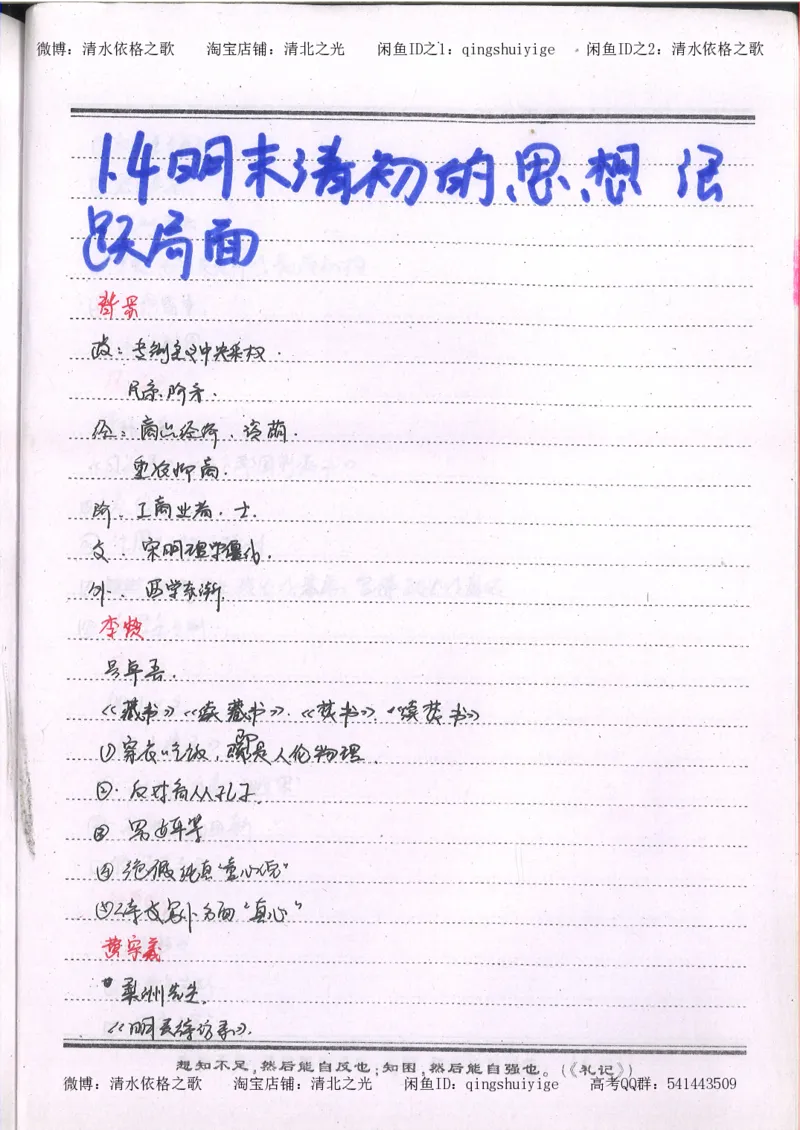 微博：清水依格之歌 淘宝店铺：清北之光 闲鱼ID之1：qingshuiyige 闲鱼ID之2：清水依格之歌
1.4明末清初的思想活
跃局面
背景
政：专制主义中央集权.
民族.阶矛.
经：商品经济、资萌.
重农抑商.
阶、工商业者.士.
文、宋明理学僵化.
外、西学东渐.
李贽
号卓吾.
《藏书》《续藏书》.《焚书》.《续焚书》
①穿衣吃饭,即是人伦物理.
②.反对盲从孔子.
③ 男女平等
④绝假纯真"童心说"
黄宗羲
梨洲先生.
《明夷待访录》.
想知不足,然后能自反也;知困,然后能自强也。(《礼记》)
微博：清水依格之歌 淘宝店铺：清北之光 闲鱼ID：qingshuiyige 高考QQ群：541443509